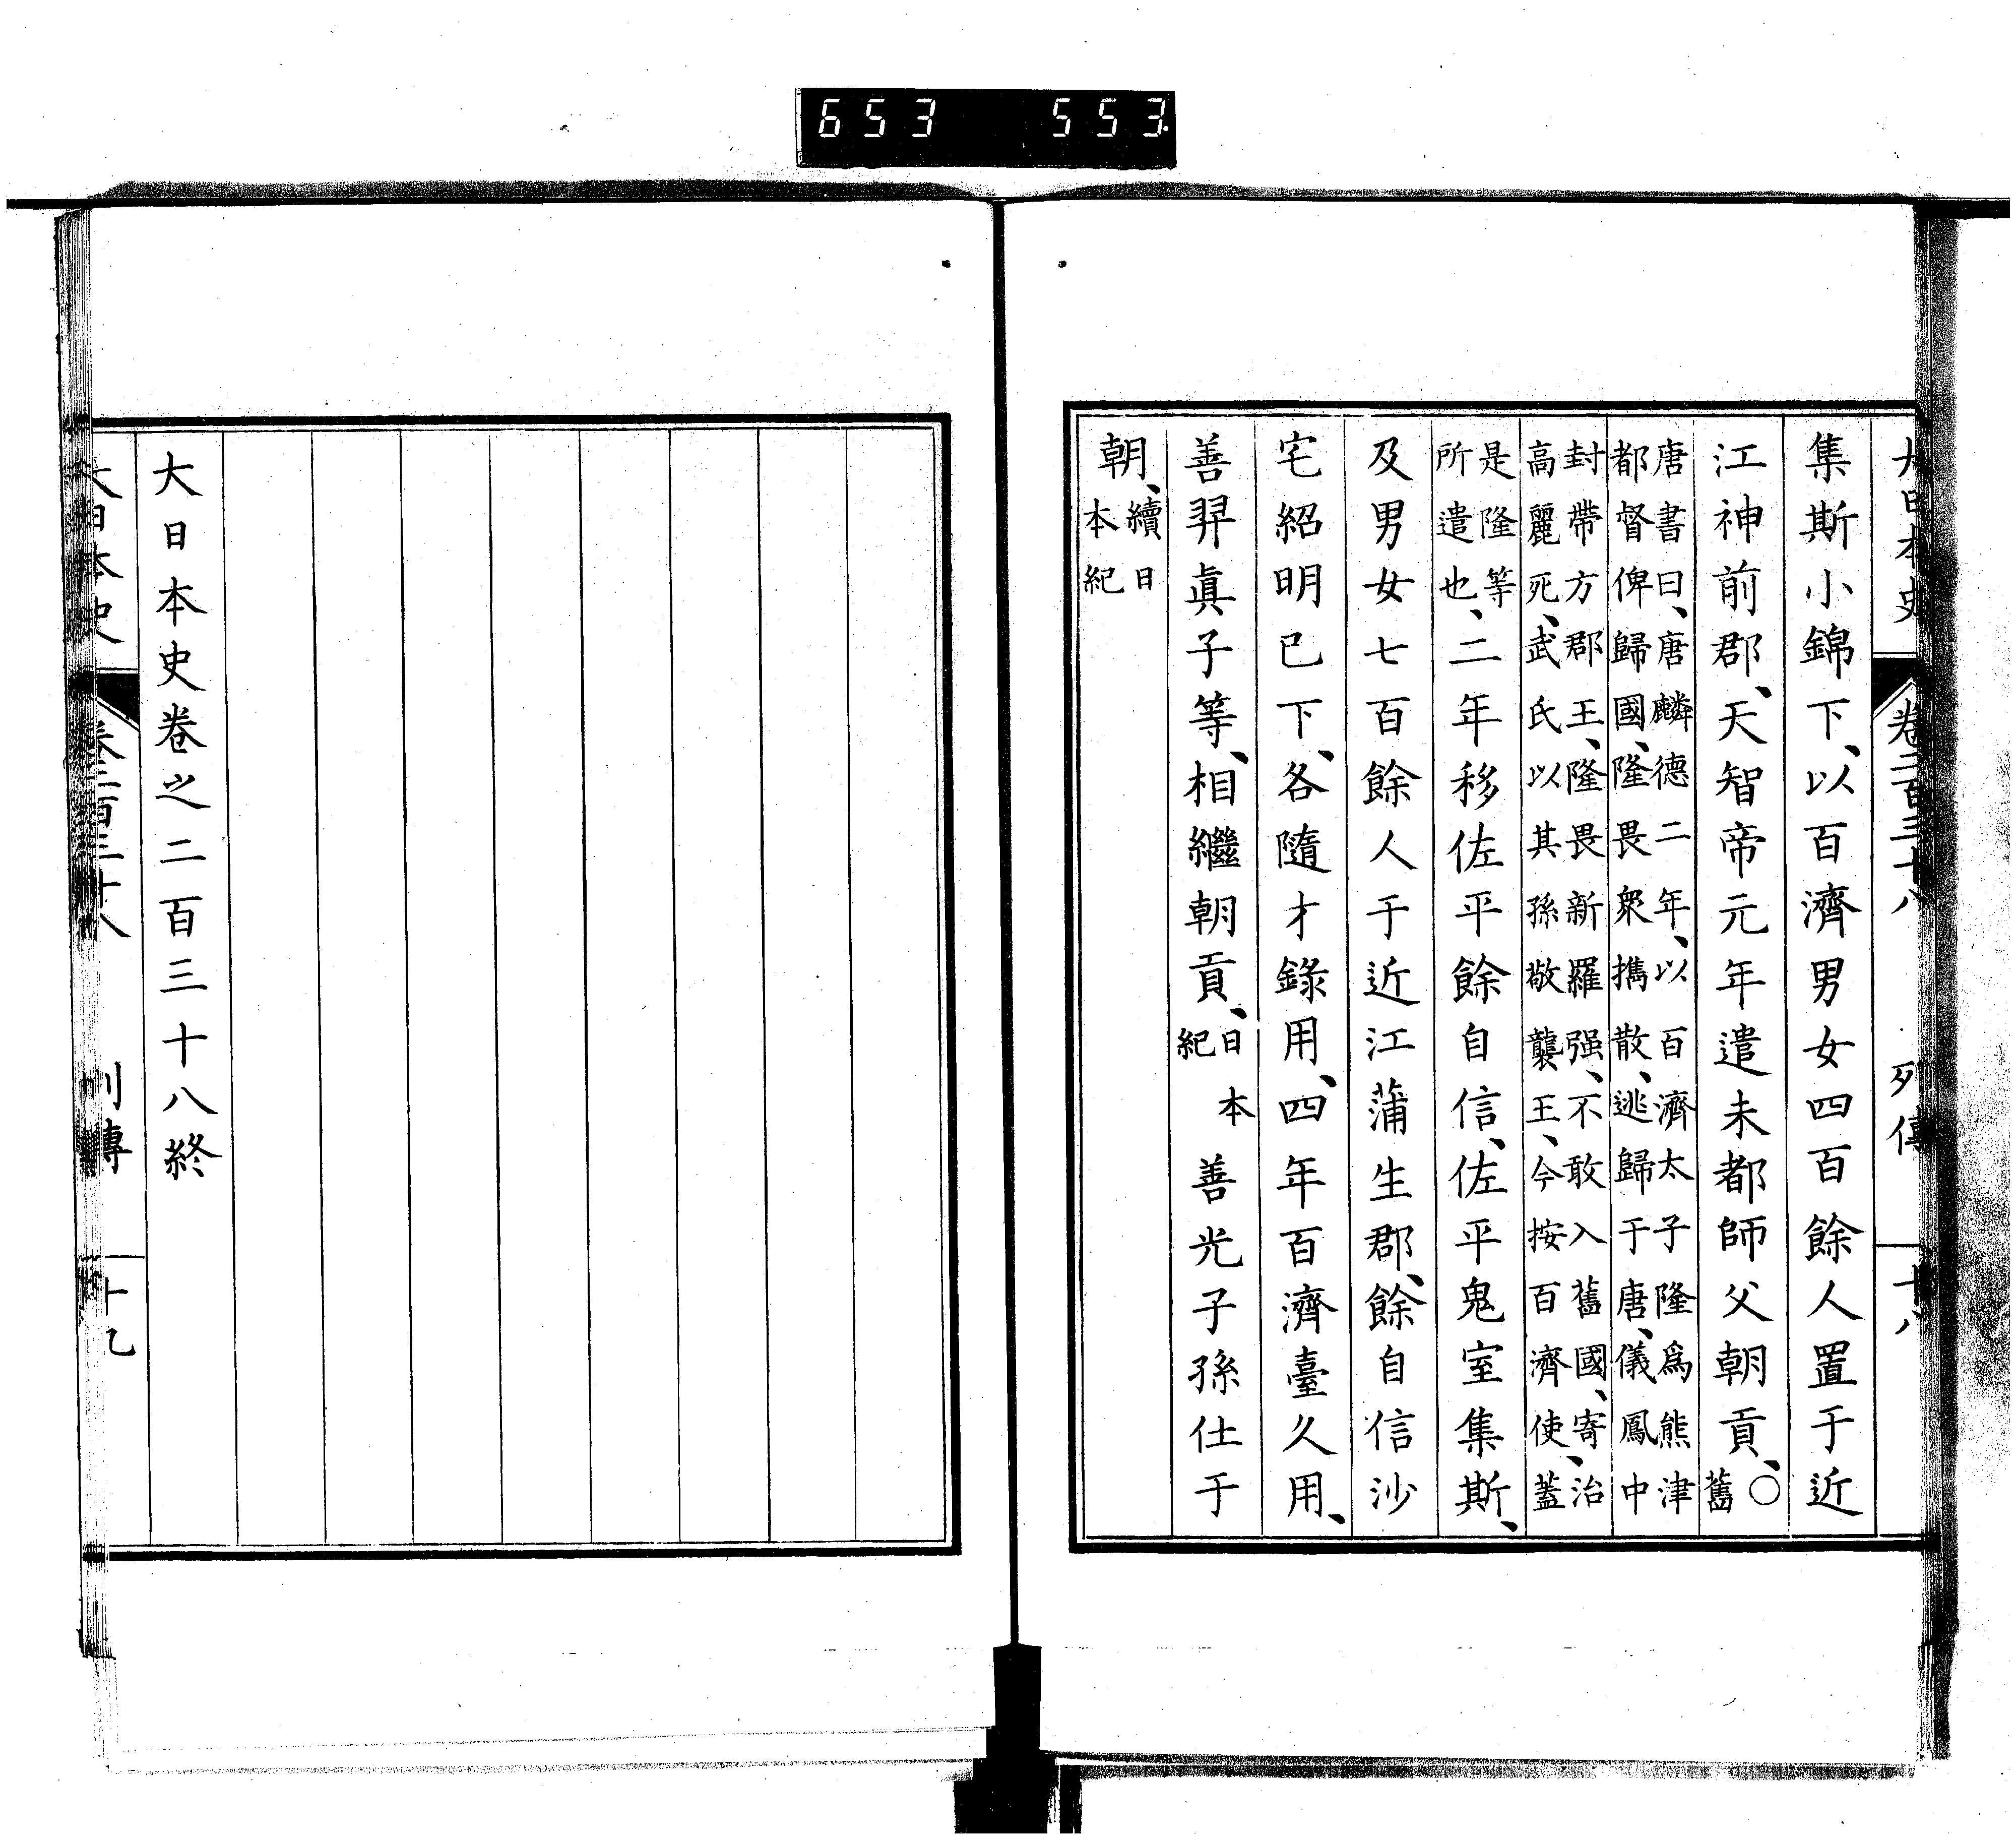 653 553.
大日本史 卷二百三十八 列傳 十八
集斯小錦下、以百濟男女四百餘人置于近
江神前郡、天智帝元年遣末都師父朝貢、○舊
唐書曰、唐麟德二年、以百濟太子隆爲熊津
都督俾歸國、隆畏衆攜散、逃歸于唐、儀鳳中
封帶方郡王、隆畏新羅强、不敢入舊國、寄治
高麗死、武氏以其孫敬襲王、今按百濟使、蓋
是隆等
所遣也、二年移佐平餘自信、佐平鬼室集斯、
及男女七百餘人于近江蒲生郡、餘自信沙
宅紹明已下、各隨才錄用、四年百濟臺久用、
善羿眞子等、相繼朝貢、日本紀善光子孫仕于
朝、續日本紀
大日本史卷之二百三十八終
大日本史 卷二百三十八 列傳 十九